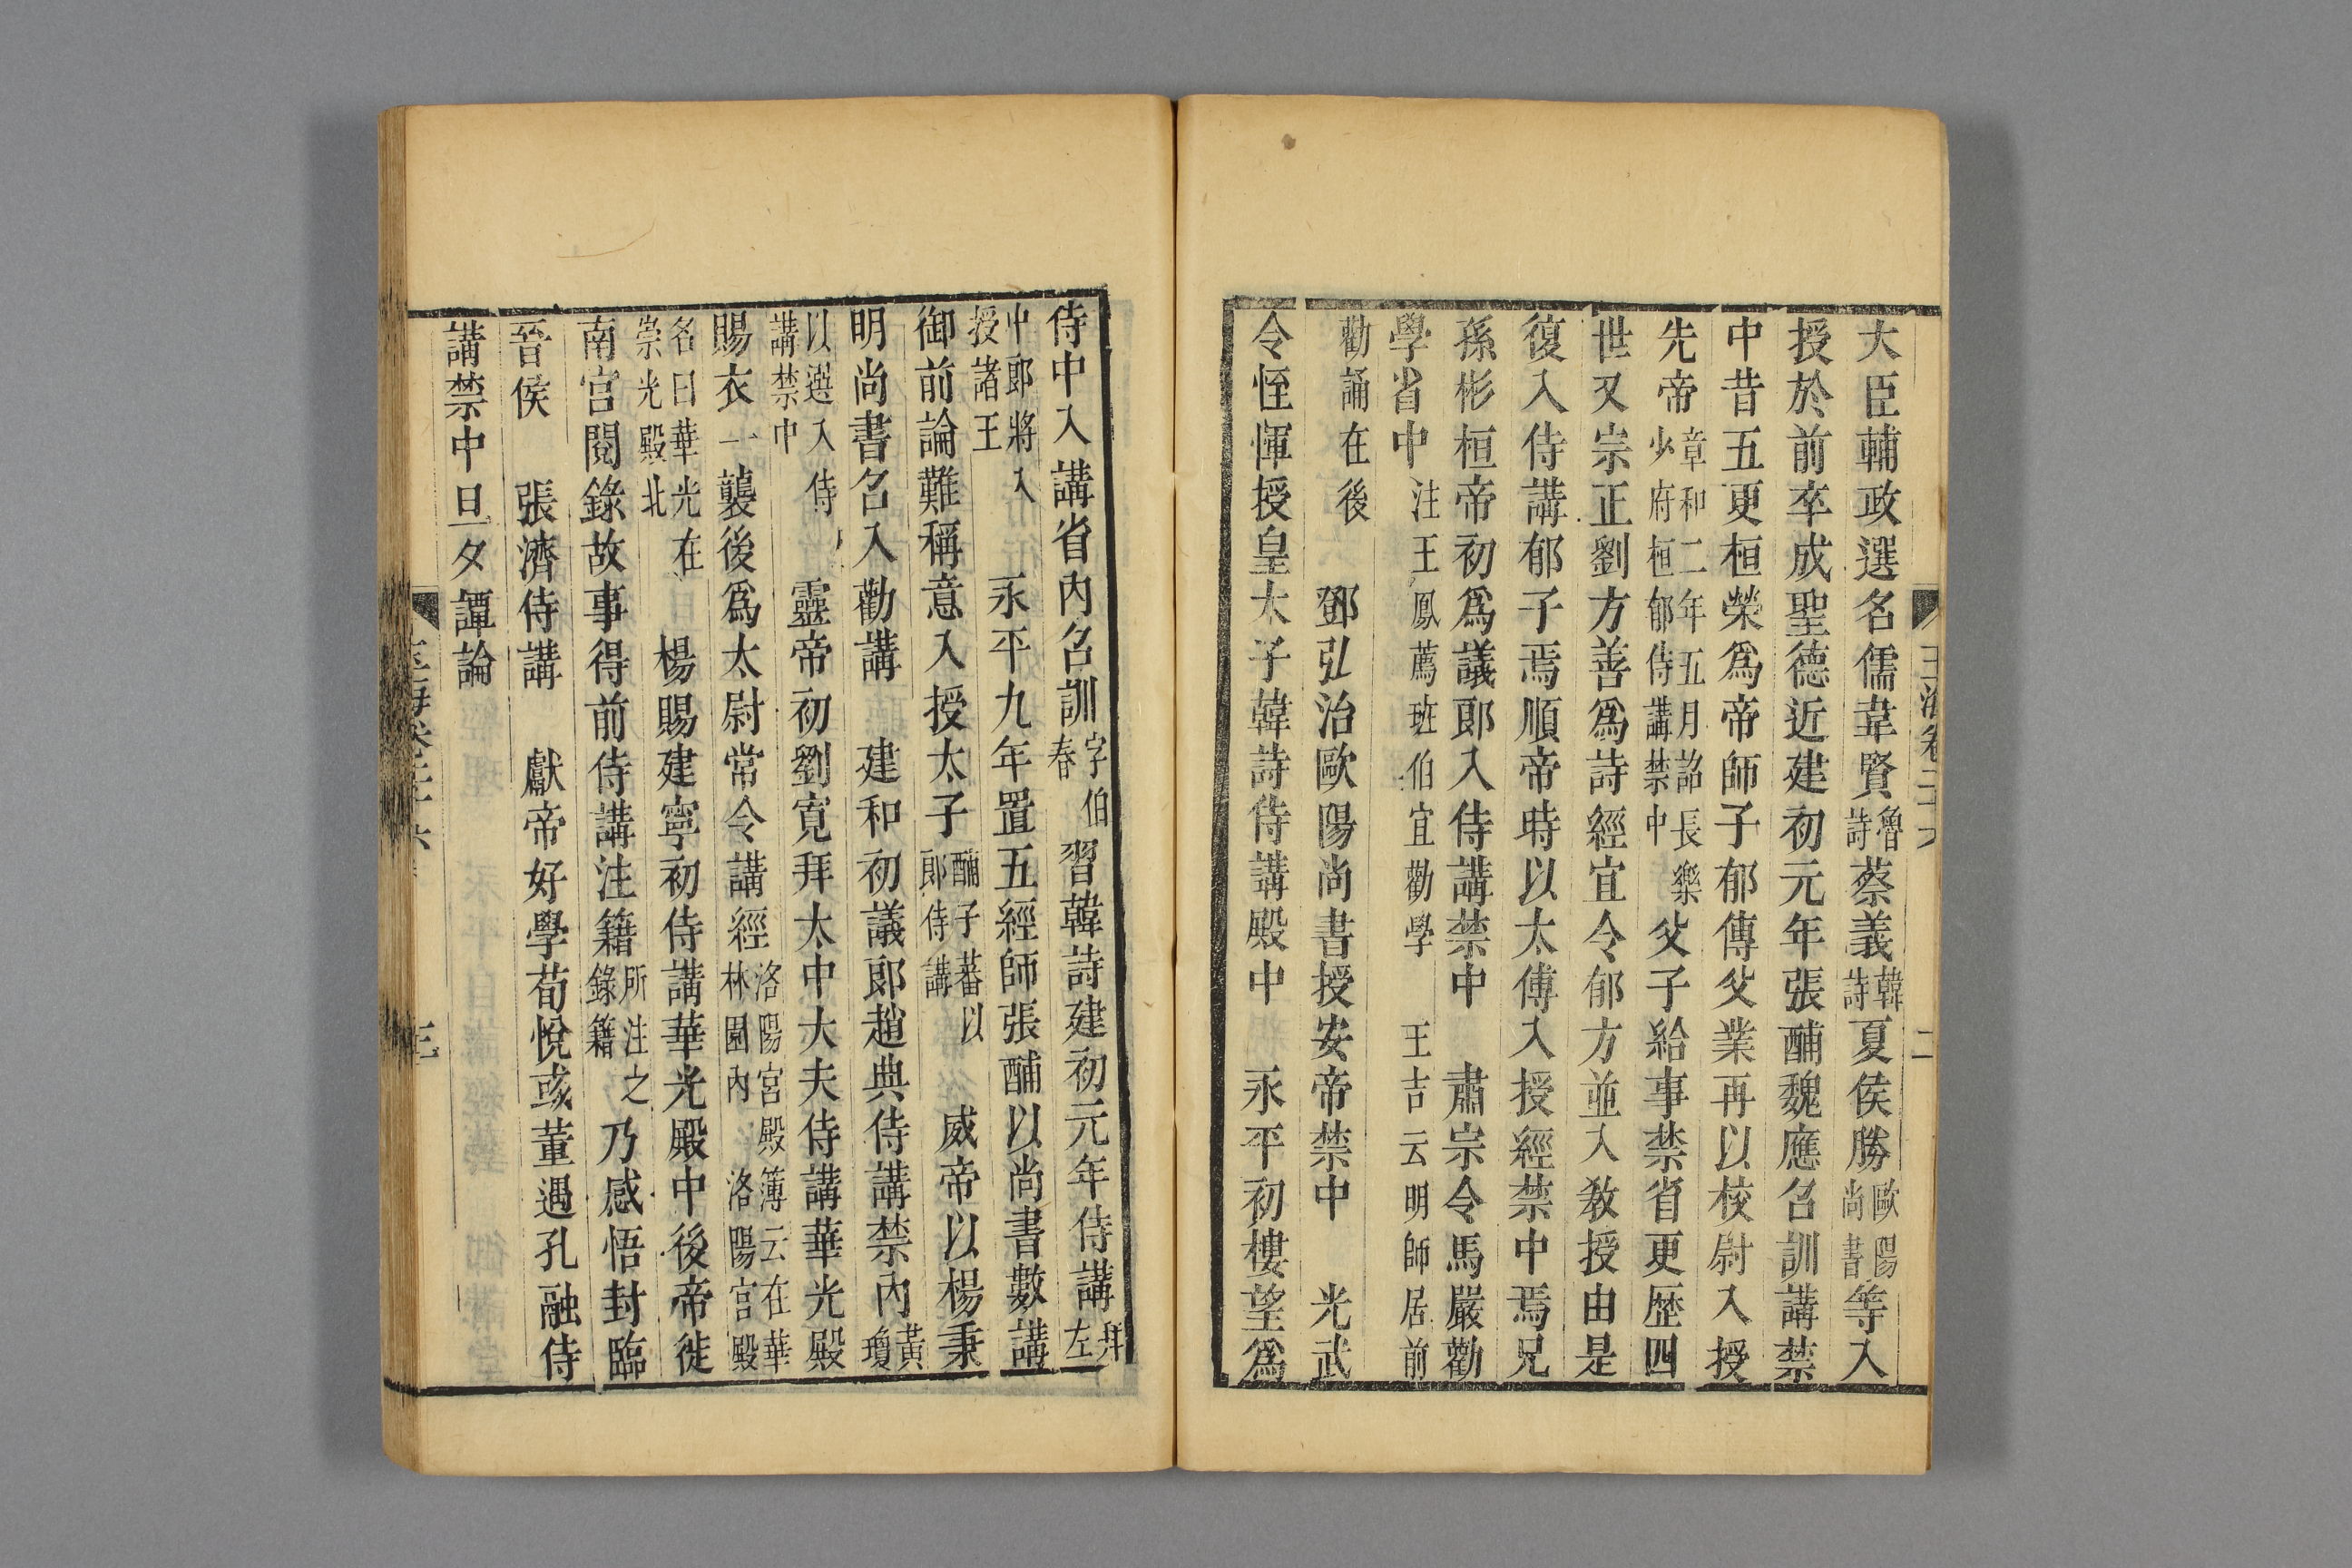 玉海卷二十六 二
大臣輔政選名儒韋賢魯詩蔡義韓詩夏侯勝歐陽尚書等入
授於前卒成聖德近建初元年張酺魏應召訓講禁
中昔五更桓榮爲帝師子郁傳父業再以校尉入授
先帝章和二年五月詔長樂少府桓郁侍講禁中父子給事禁省更歴四
世又宗正劉方善爲詩經宜令郁方並入教授由是
復入侍講郁子焉順帝時以太傅入授經禁中焉兄
孫彬桓帝初爲議郎入侍講禁中 肅宗令馬嚴勸
學省中注王鳳薦班伯宜勸學 王吉云明師居前
勸誦在後 鄧弘治歐陽尚書授安帝禁中 光武
令恁惲授皇太子韓詩侍講殿中 永平初樓望爲
侍中入講省內召訓字伯春習韓詩建初元年侍講拜左
中郎將入授諸王 永平九年置五經師張酺以尚書數講
御前論難稱意入授太子酺子蕃以郎侍講 威帝以楊秉
明尚書召入勸講 建和初議郎趙典侍講禁內黃瓊
以選入侍講禁中 靈帝初劉寬拜太中大夫侍講華光殿
賜衣一襲後爲太尉常令講經洛陽宮殿簿云在華林園內 洛陽宮殿
名曰華光在崇光殿北 楊賜建寧初侍講華光殿中後帝徙
南宮閱錄故事得前侍講注籍所注之錄籍乃感悟封臨
晉侯 張濟侍講 獻帝好學荀悅彧董遇孔融侍
講禁中旦夕譚論
三